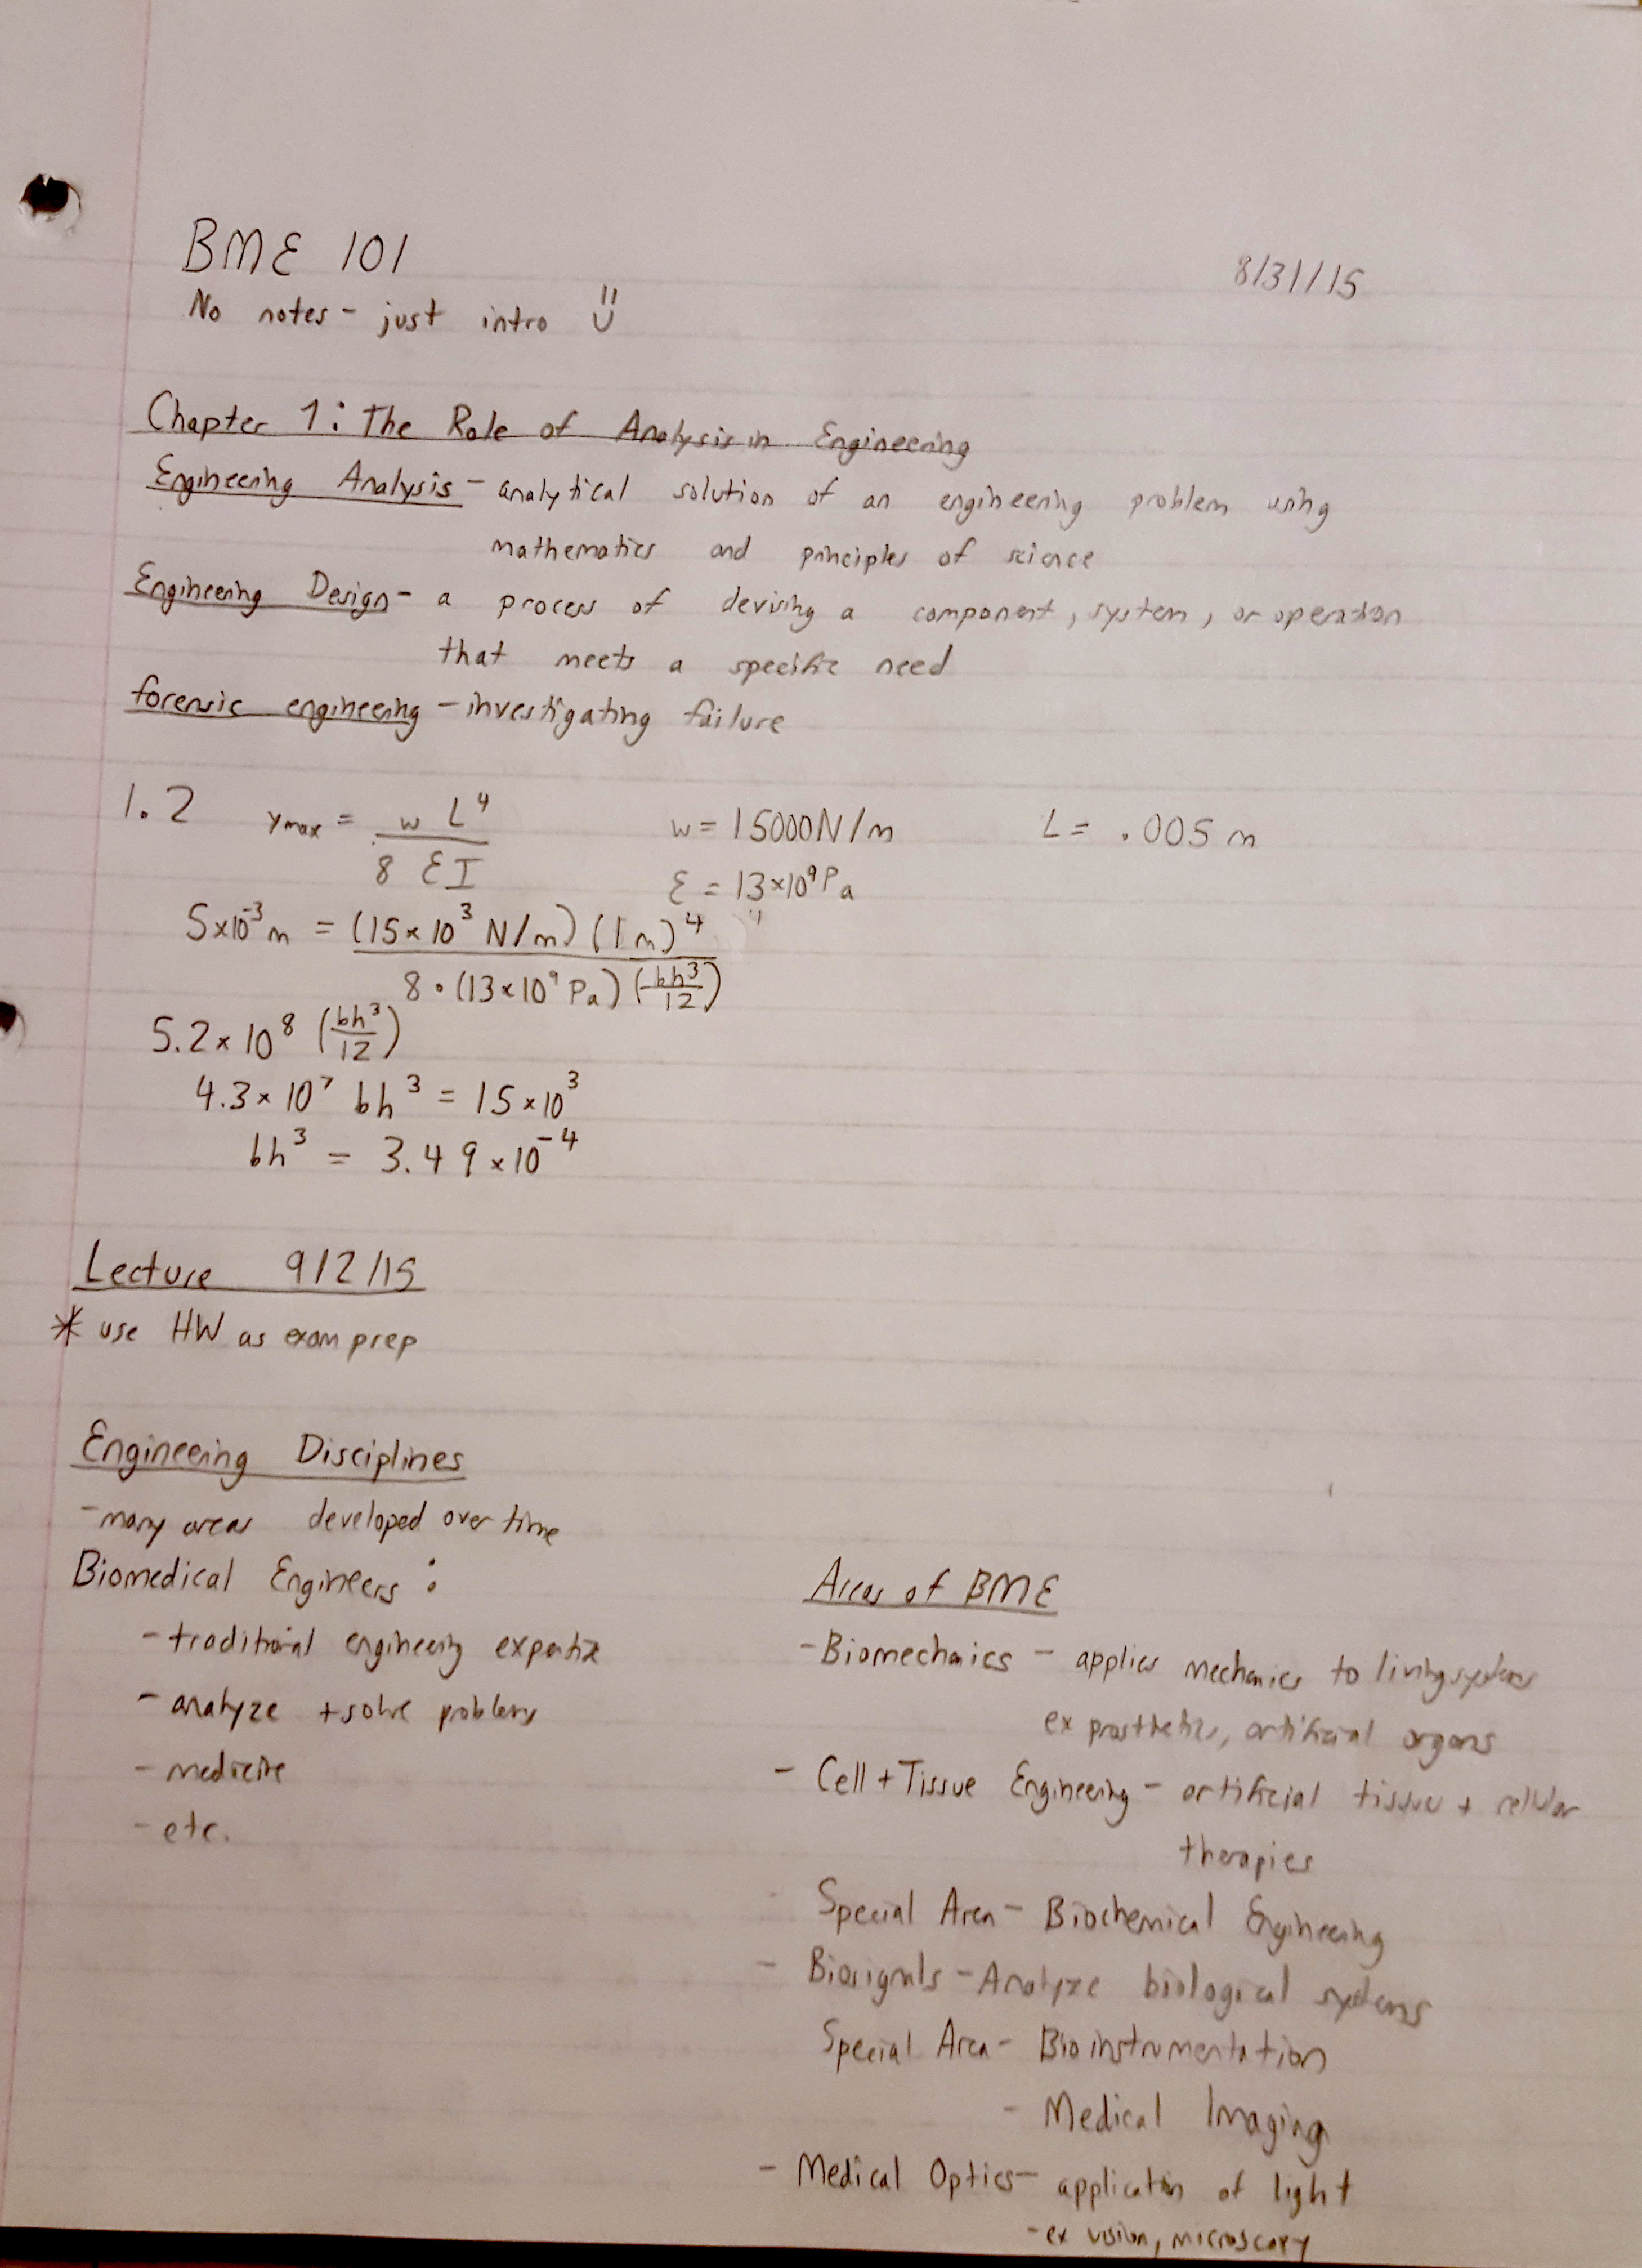 BME 101
8/31/15
No notes - just intro
Chapter 1: The Role of Analysis in Engineering
Engineering Analysis - analytical solution of an engineering problem using
mathematics and principles of science
Engineering Design - a process of devising a component, system, or operation
that meets a specific need
forensic engineering - investigating failure
1.2 ymax = w L⁴ / 8 EI w = 15000 N/m L = .005 m
E = 13×10⁹ Pa
5×10⁻³ m = (15×10³ N/m) (1m)⁴ / 8 • (13×10⁹ Pa) (bh³/12)
5.2×10⁸ (bh³/12)
4.3×10⁷ bh³ = 15×10³
bh³ = 3.49×10⁻⁴
Lecture 9/2/15
* use HW as exam prep
Engineering Disciplines
- many areas developed over time
Biomedical Engineers:
- traditional engineering expertise
- analyze + solve problems
- medicine
- etc.
Areas of BME
- Biomechaics - applies mechanics to living systems
ex prosthetics, artificial organs
- Cell + Tissue Engineering - artificial tissue + cellular
therapies
Special Area - Biochemical Engineering
- Biosignals - Analyze biological systems
Special Area - Bioinstrumentation
- Medical Imaging
- Medical Optics - application of light
- ex vision, microscopy